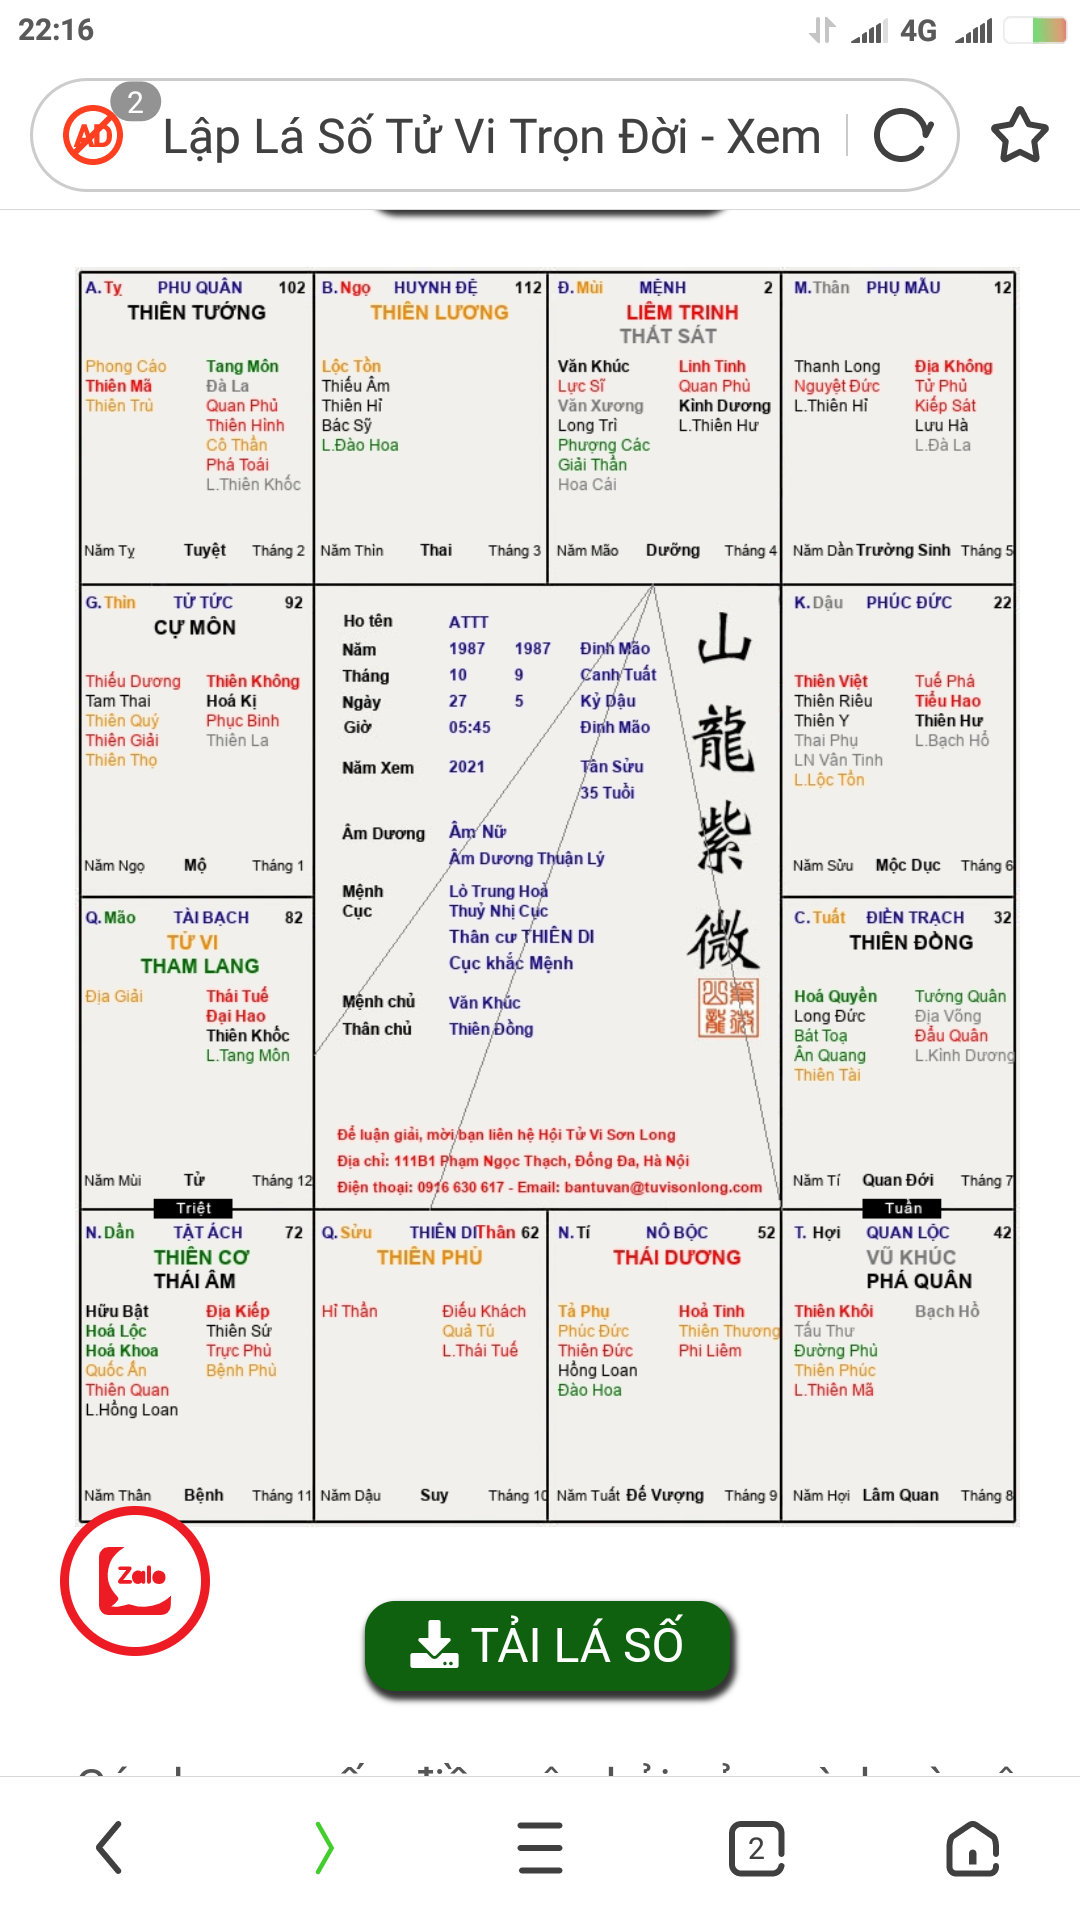 22:16
4G
AD
2
Lập Lá Số Tử Vi Trọn Đời - Xem
A.Tỵ PHU QUÂN 102
THIÊN TƯỚNG
Phong Cáo Tang Môn
Thiên Mã Đà La
Thiên Trù Quan Phủ
Thiên Hình
Cô Thần
Phá Toái
L.Thiên Khốc
Năm Tỵ Tuyệt Tháng 2
B.Ngọ HUYNH ĐỆ 112
THIÊN LƯƠNG
Lộc Tồn
Thiếu Âm
Thiên Hỉ
Bác Sỹ
L.Đào Hoa
Năm Thìn Thai Tháng 3
Đ.Mùi MỆNH 2
LIÊM TRINH
THẤT SÁT
Văn Khúc Linh Tinh
Lực Sĩ Quan Phù
Văn Xương Kình Dương
Long Trì L.Thiên Hư
Phượng Các
Giải Thần
Hoa Cái
Năm Mão Dưỡng Tháng 4
M.Thân PHỤ MẪU 12
Thanh Long Địa Không
Nguyệt Đức Tử Phù
L.Thiên Hỉ Kiếp Sát
Lưu Hà
L.Đà La
Năm Dần Trường Sinh Tháng 5
G.Thìn TỬ TỨC 92
CỰ MÔN
Thiếu Dương Thiên Không
Tam Thai Hoá Kị
Thiên Quý Phục Binh
Thiên Giải Thiên La
Thiên Thọ
Năm Ngọ Mộ Tháng 1
Họ tên ATTT
Năm 1987 1987 Đinh Mão
Tháng 10 9 Canh Tuất
Ngày 27 5 Kỷ Dậu
Giờ 05:45 Đinh Mão
Năm Xem 2021 Tân Sửu
35 Tuổi
Âm Dương Âm Nữ
Âm Dương Thuận Lý
Mệnh Lò Trung Hoả
Cục Thuỷ Nhị Cục
Thân cư THIÊN DI
Cục khắc Mệnh
Mệnh chủ Văn Khúc
Thân chủ Thiên Đồng
山
龍
紫
微
Để luận giải, mời bạn liên hệ Hội Tử Vi Sơn Long
Địa chỉ: 111B1 Phạm Ngọc Thạch, Đống Đa, Hà Nội
Điện thoại: 0916 630 617 - Email: bantuvan@tuvisonlong.com
K.Dậu PHÚC ĐỨC 22
Thiên Việt Tuế Phá
Thiên Riêu Tiểu Hao
Thiên Y Thiên Hư
Thai Phụ L.Bạch Hổ
LN Văn Tinh
L.Lộc Tồn
Năm Sửu Mộc Dục Tháng 6
Q.Mão TÀI BẠCH 82
TỬ VI
THAM LANG
Địa Giải Thái Tuế
Đại Hao
Thiên Khốc
L.Tang Môn
Năm Mùi Tử Tháng 12
C.Tuất ĐIỀN TRẠCH 32
THIÊN ĐỒNG
Hoá Quyền Tướng Quân
Long Đức Địa Võng
Bát Toạ Đẩu Quân
Ân Quang L.Kình Dương
Thiên Tài
Năm Tí Quan Đới Tháng 7
Triệt
Tuần
N.Dần TẬT ÁCH 72
THIÊN CƠ
THÁI ÂM
Hữu Bật Địa Kiếp
Hoá Lộc Thiên Sứ
Hoá Khoa Trực Phù
Quốc Ấn Bệnh Phù
Thiên Quan
L.Hồng Loan
Năm Thân Bệnh Tháng 11
Q.Sửu THIÊN DI Thân 62
THIÊN PHỦ
Hỉ Thần Điếu Khách
Quả Tú
L.Thái Tuế
Năm Dậu Suy Tháng 10
N.Tí NÔ BỘC 52
THÁI DƯƠNG
Tả Phụ Hoả Tinh
Phúc Đức Thiên Thương
Thiên Đức Phi Liêm
Hồng Loan
Đào Hoa
Năm Tuất Đế Vượng Tháng 9
T.Hợi QUAN LỘC 42
VŨ KHÚC
PHÁ QUÂN
Thiên Khôi Bạch Hổ
Tấu Thư
Đường Phù
Thiên Phúc
L.Thiên Mã
Năm Hợi Lâm Quan Tháng 8
Zalo
TẢI LÁ SỐ
2